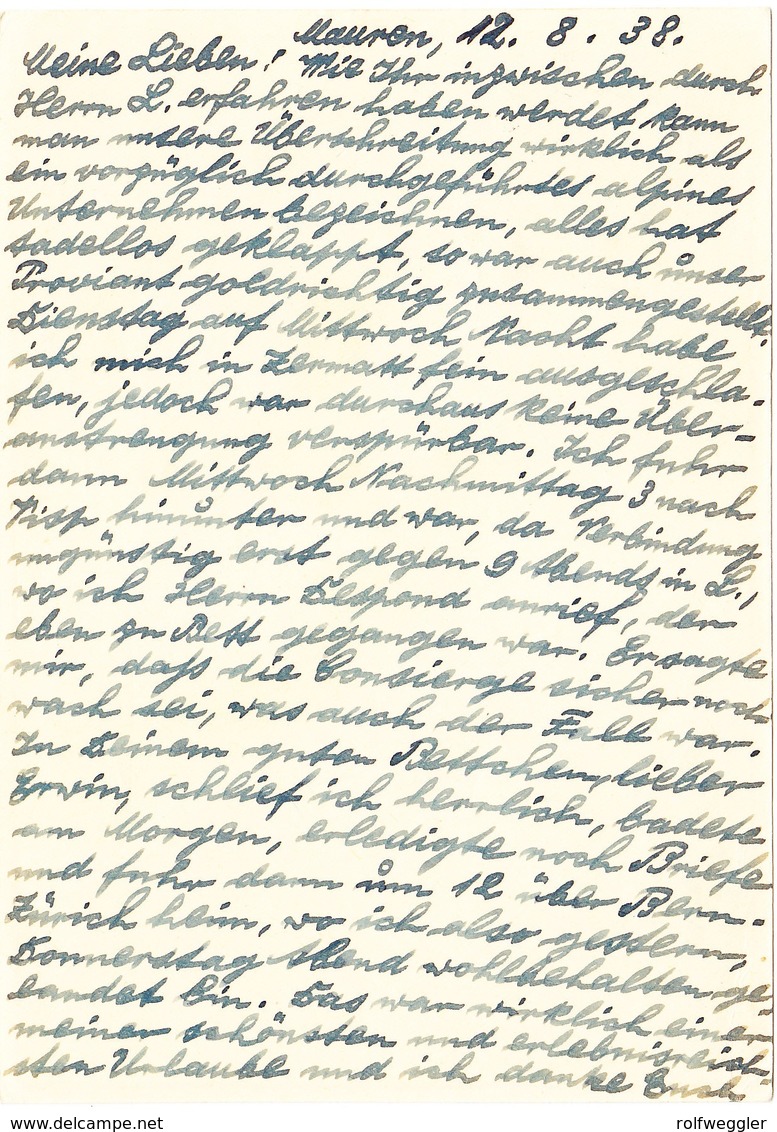 Mauren, 12. 8. 38.
Meine Lieben! Wie Ihr inzwischen durch
Herrn L. erfahren haben werdet kann
man unsere Überschreitung wirklich als
ein vorzüglich durchgeführtes alpines
Unternehmen bezeichnen, alles hat
tadellos geklappt, so war auch unser
Proviant goldrichtig zusammengestellt.
Dienstag auf Mittwoch Nacht habe
ich mich in Zermatt fein ausgeschla-
fen, jedoch war durchaus keine Über-
anstrengung verspürbar. Ich fuhr
dann Mittwoch Nachmittag 3 nach
Visp hinunter und war, da Verbindung
ungünstig erst gegen 9 Abends in L.,
wo ich Herrn Despond anrief, der
eben zu Bett gegangen war. Er sagte
mir, daß die Consierge sicher noch
wach sei, was auch der Fall war.
In Deinem guten Bettchen, lieber
Erwin, schlief ich herrlich, badete
am Morgen, erledigte noch Briefe
und fuhr dann um 12 über Bern-
Zürich heim, wo ich also gestern,
Donnerstag Abend wohlbehalten ge-
landet bin. Das war wirklich einer
meiner schönsten und erlebnisreich-
sten Urlaube und ich danke Euch
rolfweggler